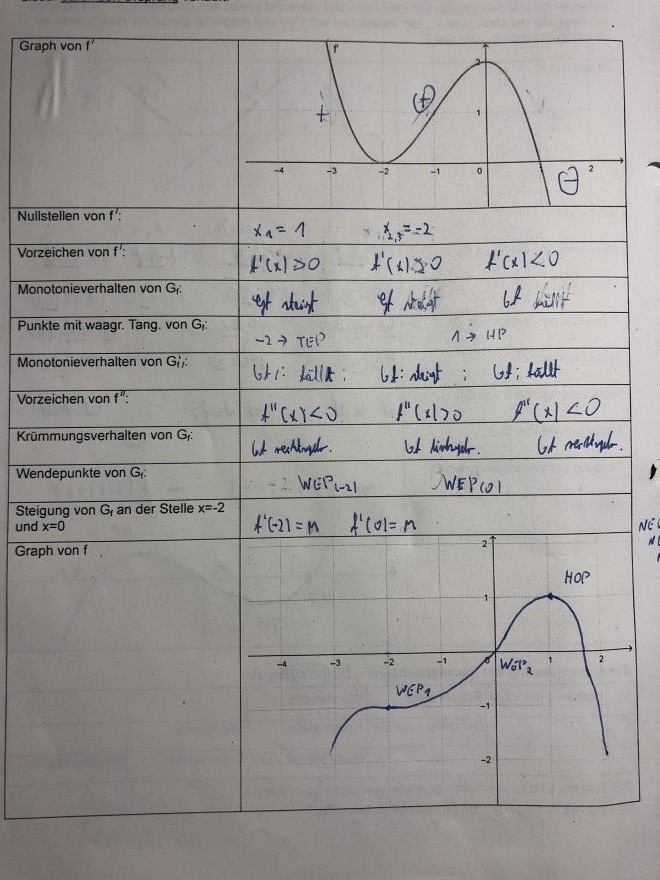 Graph von f'
f'
2
+
(+)
1
-4 -3 -2 -1 0 2
(-)
Nullstellen von f': x₁ = 1 x₂,₃ = -2
Vorzeichen von f': f'(x) > 0 f'(x) > 0 f'(x) < 0
Monotonieverhalten von Gf: Gf steigt Gf steigt Gf fällt
Punkte mit waagr. Tang. von Gf: -2 → TEP 1 → HP
Monotonieverhalten von Gf': Gf': fällt ; Gf': steigt ; Gf': fällt
Vorzeichen von f'': f''(x) < 0 f''(x) > 0 f''(x) < 0
Krümmungsverhalten von Gf: Gf rechtsgekr. Gf linksgekr. Gf rechtsgekr.
Wendepunkte von Gf: -2 WEP(-2) WEP(0)
Steigung von Gf an der Stelle x=-2
und x=0
f'(-2) = m f'(0) = m
Graph von f
2
HOP
1
-4 -3 -2 -1 0 1 2
WEP₂
WEP₁
-1
-2